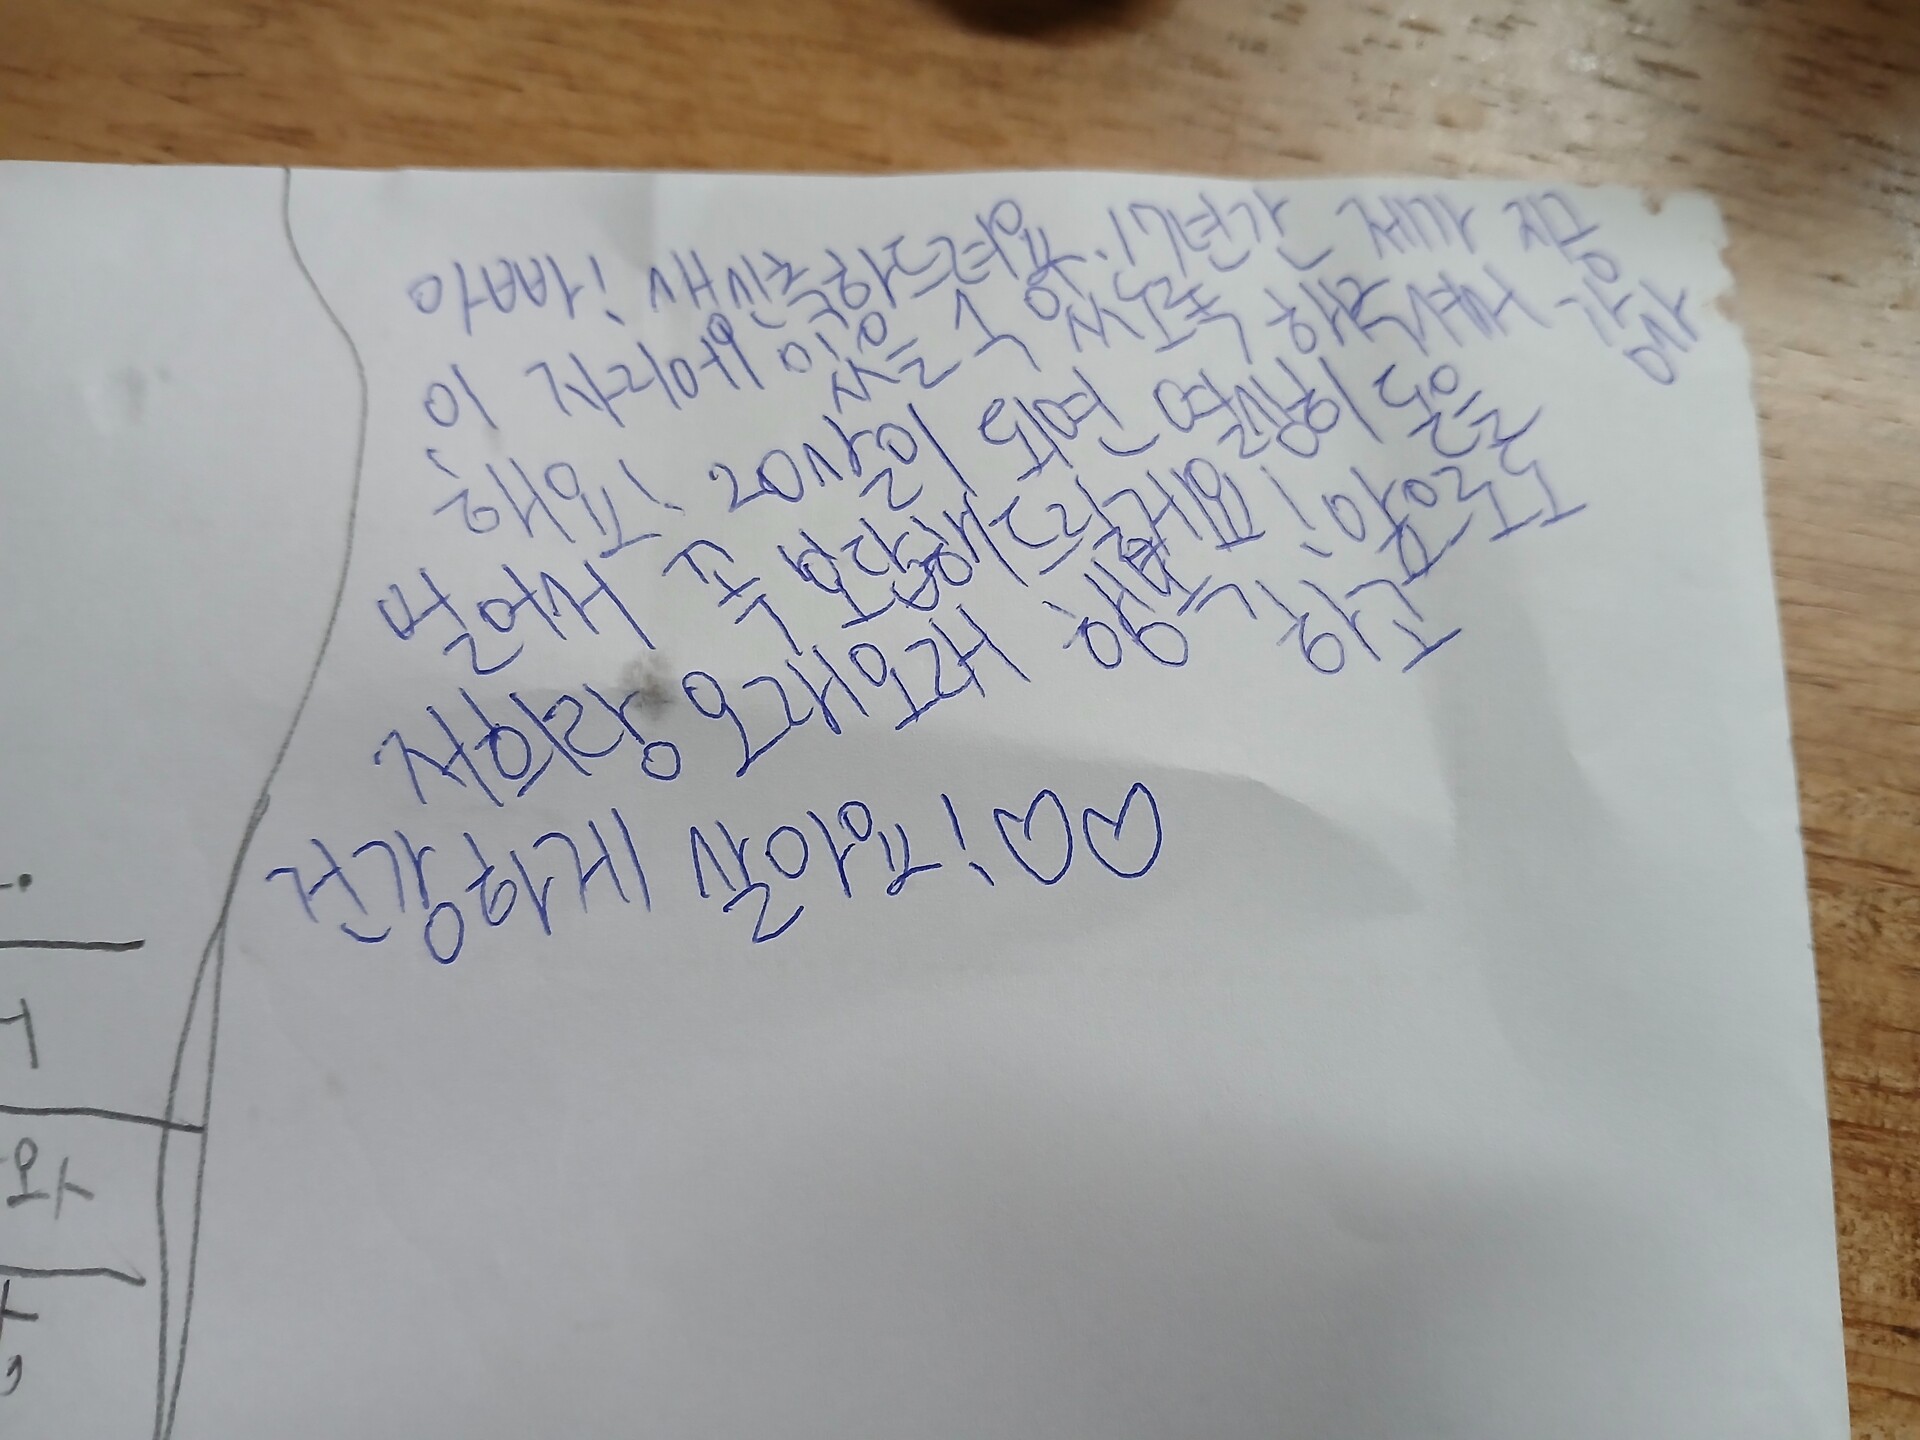 아빠! 생신축하드려요. 17년간 제가 지금
이 자리에 있을 수 있도록 해주셔서 감사
해요! 20살이 되면 열심히 돈을
벌어서 꼭 보답해드릴게요! 앞으로도
저희랑 오래오래 행복하고
건강하게 살아요!♡♡
와